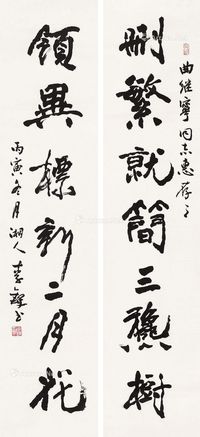 曲继寧同志惠存
删繁就簡三穐樹
領異標新二月花
丙寅冬月湘人李鐸书